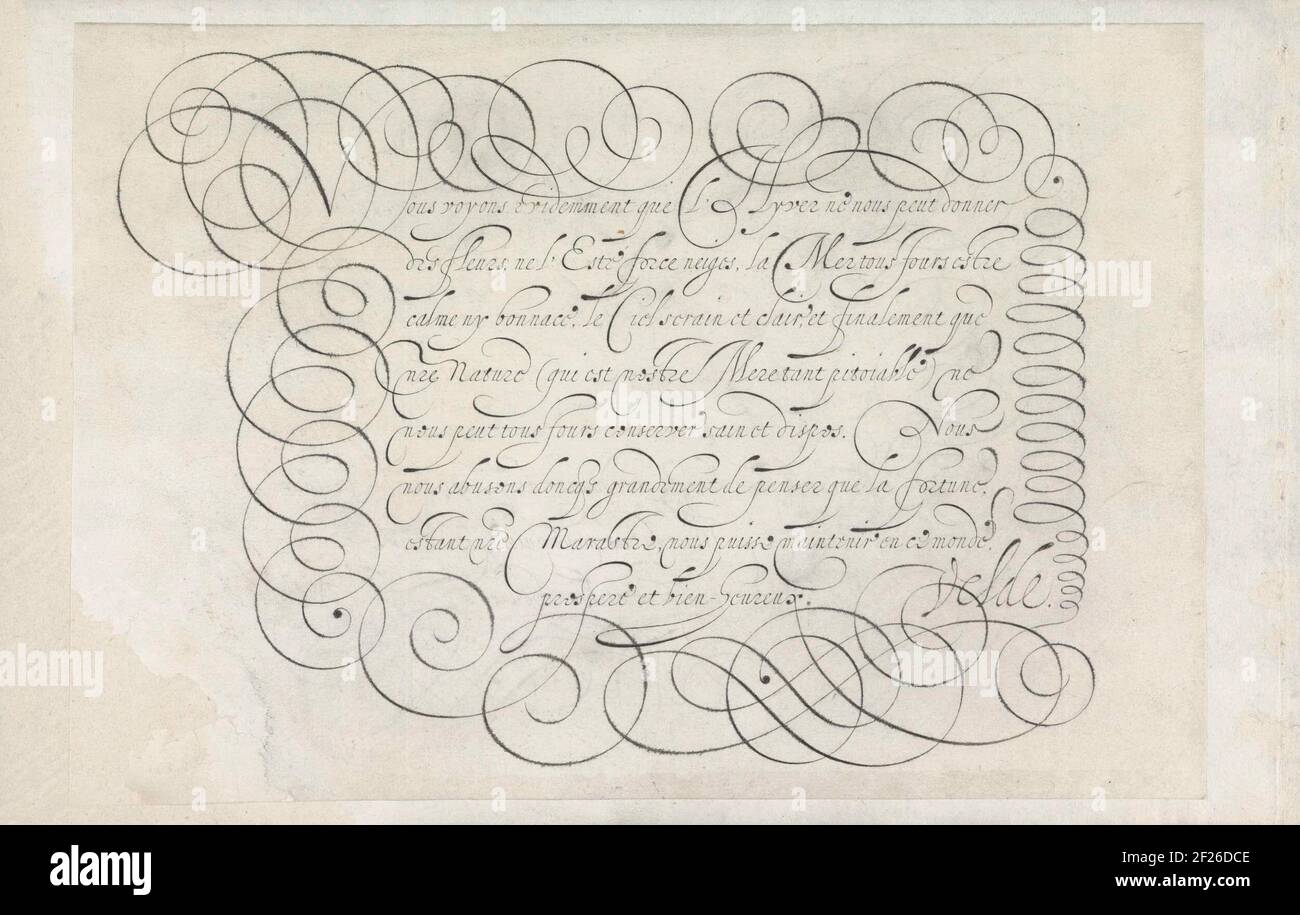 Nous voyons evidemment que l'Hyver ne nous peut donner
des fleurs, ne l'Esté force neiges, la Mer tousjours estre
calme ny bonnace, le Ciel serain et clair, et finalement que
nre Nature (qui est nostre Mere tant pitoiable) ne
nous peut tousjours conserver sain et dispos. Nous
nous abusons doncqs grandement de penser que la fortune,
estant nre Marastre, nous puisse maintenir en ce monde
prospere et bien-heureux.
Velde.
alamy
alamy
Image ID: 2F26DCE
www.alamy.com